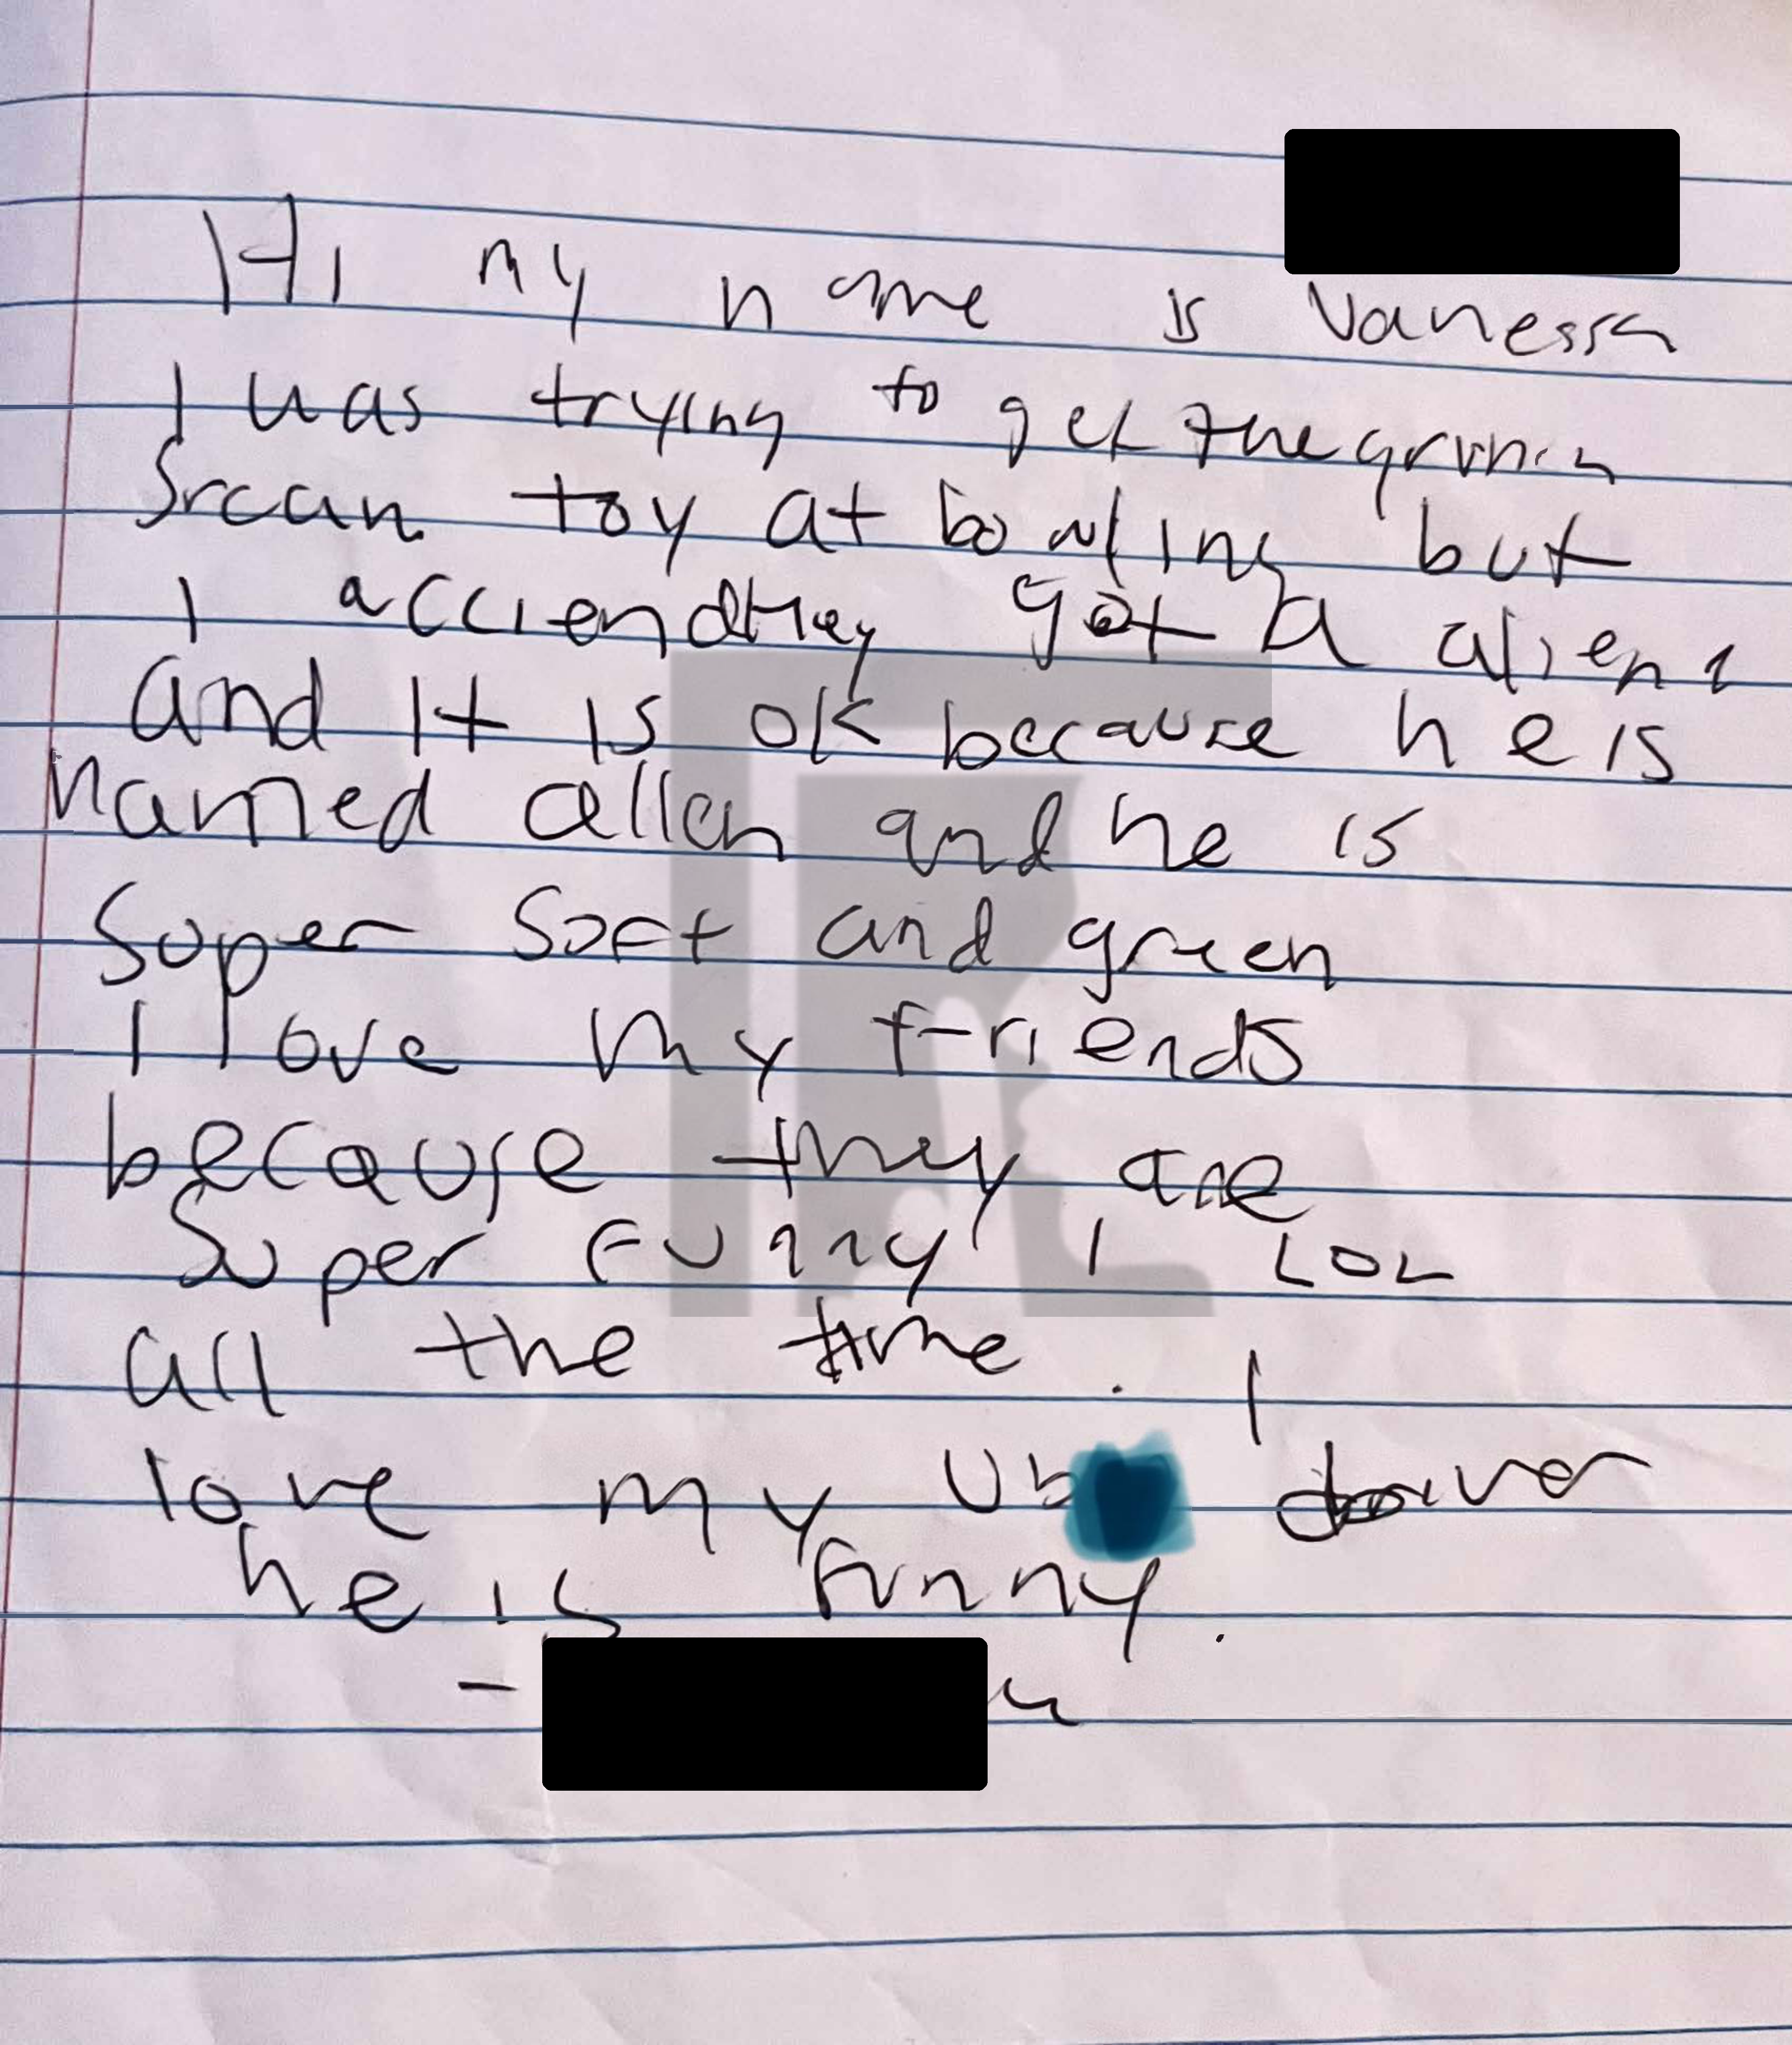 Hi my name is Vanessa
I was trying to get the
toy at bowling but
I acciendtley got a alien
and It is ok because he is
named allen and he is
Super Soft and green
I love my friends
because they are
Super Funny I LOL
all the time. I
love my driver
he is funny.
-